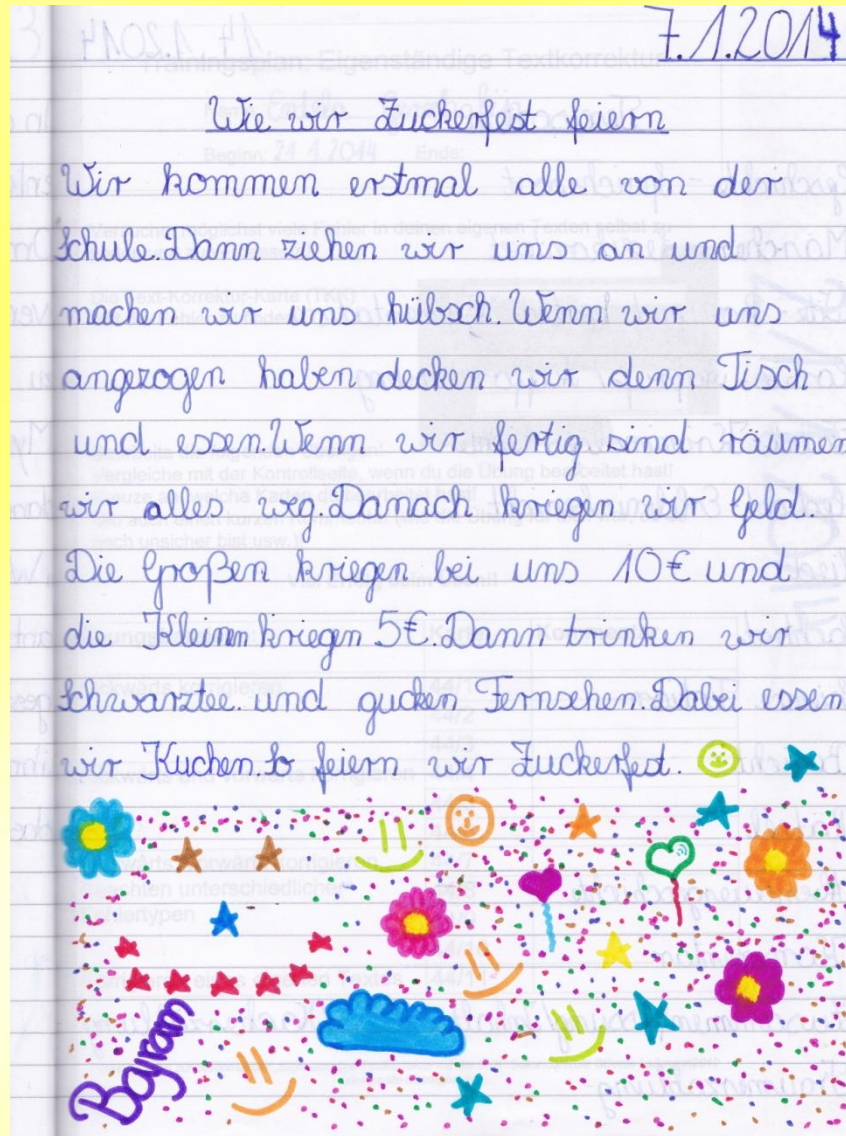 7.1.2014
Wie wir Zuckerfest feiern
Wir kommen erstmal alle von der
Schule. Dann ziehen wir uns an und
machen wir uns hübsch. Wenn wir uns
angezogen haben decken wir denn Tisch
und essen. Wenn wir fertig sind räumen
wir alles weg. Danach kriegen wir Geld.
Die Großen kriegen bei uns 10€ und
die Kleinen kriegen 5€. Dann trinken wir
Schwarztee und gucken Fernsehen. Dabei essen
wir Kuchen. So feiern wir Zuckerfest.
Bayram